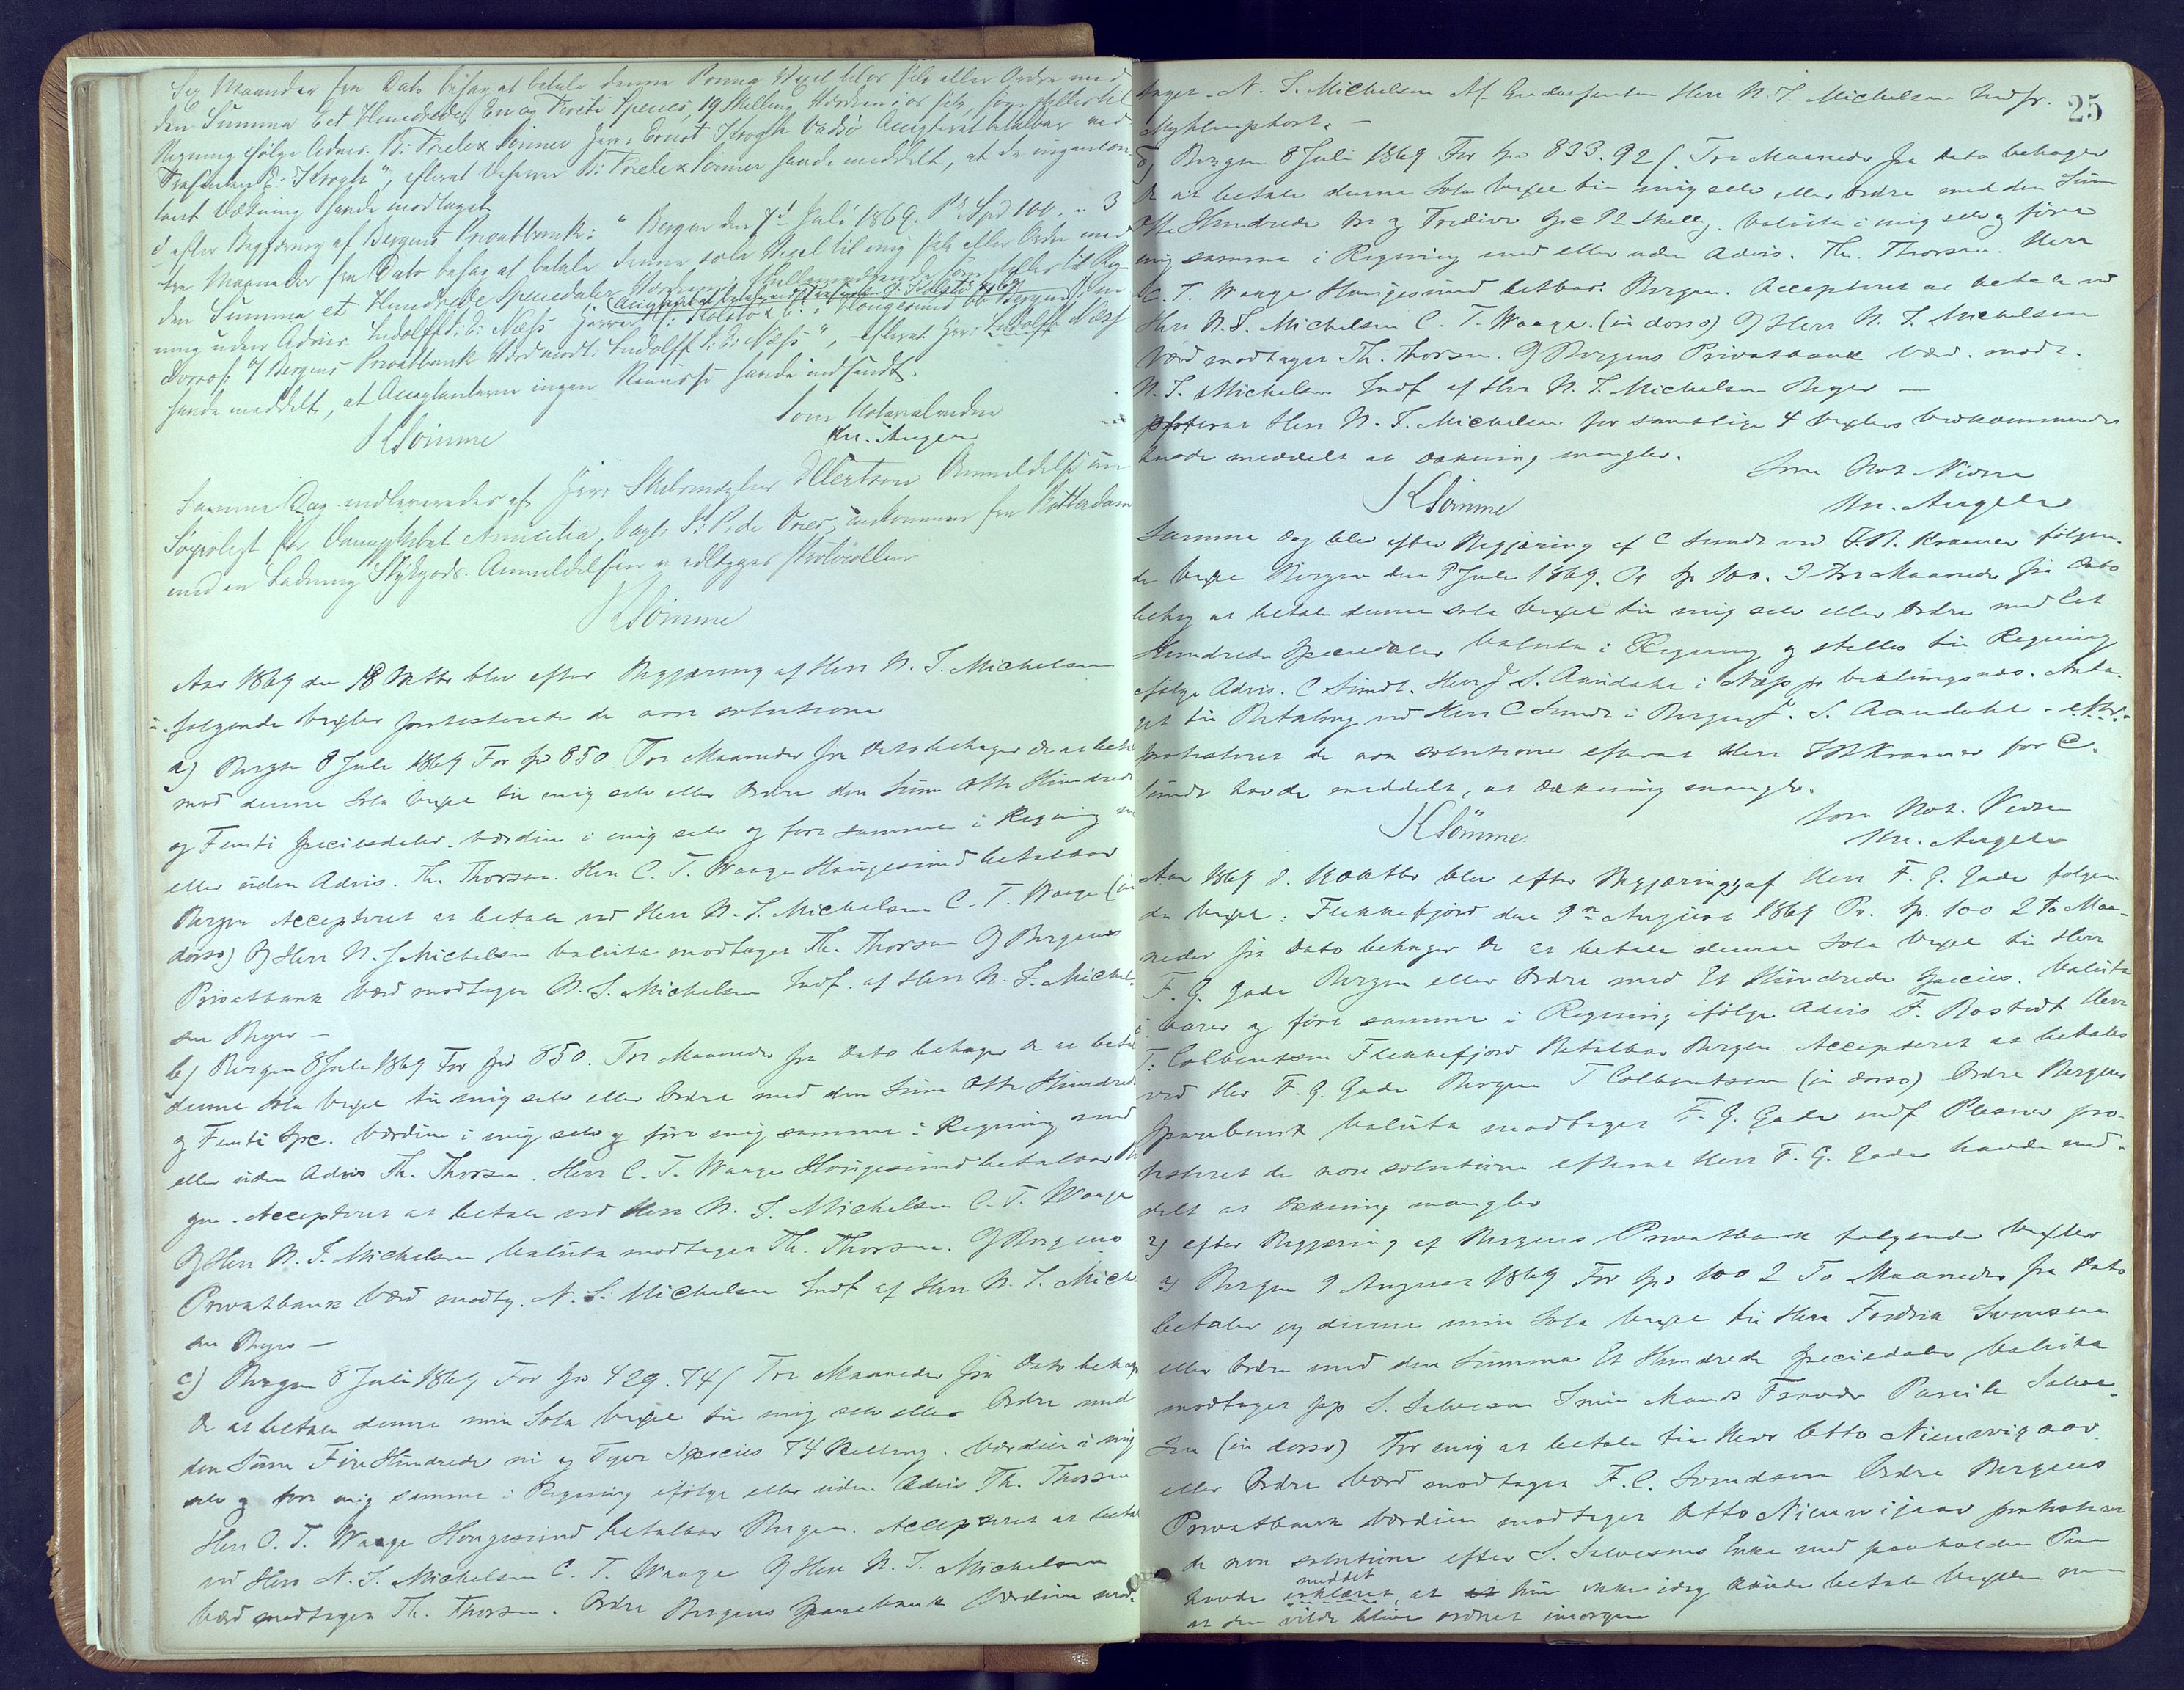 Sex Maaneder fra Dato behag at betale denne Prima Vexel til os selv eller Ordre med
den Summa Eet Hundrede En og Species, 19 Skilling, Værdien i os selv, som stilles til
Regning ifølge Advis. B: Friele & Sönner Herr Ernst Krogh Vadsö Accepteret betalbar ved
E: Krogh", efterat Herrer B: Friele & Sönner havde meddelt, at de ingen
Dækning havde modtaget
efter Begjæring af Bergens Privatbank: " Bergen den 7d Juli 1869. P. Spd 100. - 3
tre Maaneder fra Dato behag at betale denne sola Vexel til mig selv eller Ordre med
den Summa et Hundrede Speciedaler Værdien i Mellemværende som stilles til Reg-
ning uden Advis. Ludolff S: E: Næss Herrer
dorso: O/ Bergens Privatbank Værd modt: Ludolff S: E: Næss", efterat Hr: Ludolff Næss
havde meddelt, at Acceptanterne ingen Remisse havde indsendt.
Som Notarialvidne
KSömme
Kn. Angell
Samme Dag indleveredes af Herr Skibsmægler Ellertsen Anmeldelse om
Søprotest for Dampskibet Amicitia, Capt: S: P. de Vries, ankommen fra Rotterdam
med en Ladning Stykgods. Anmeldelsen er vedlagt Protocollen
KSömme
Aar 1869 den 18 Oktbr blev efter Begjæring af Herr N. S. Michelsen
følgende Vexler protesterede de non solutione
a) Bergen 8 Juli 1869 For Spd 850 Tre Maaneder fra Dato behager De at betale
mod denne Sola Vexel til mig selv eller Ordre den Sum Otte Hundrede
og Femti Speciesdaler. Værdien i mig selv og före samme i Regning med
eller uden Advis. Th. Thorsen. Herr C. T. Waage Haugesund betalbar
Bergen Accepteret at betale ved Herr N. S. Michelsen C. T. Waage (in
dorso) O/ Herr N. S. Michelsen Valuta modtaget Th. Thorsen O/ Bergens
Privatbank Værd modtaget N. S. Michelsen Indf. af Herr N. S. Michel-
sen Bergen —
b) Bergen 8 Juli 1869 For Spd 850. Tre Maaneder fra Dato behager De at betale
denne Sola Vexel til mig selv eller Ordre med den Sum Otte Hundrede
og Femti Spc. Værdien i mig selv og före mig samme i Regning med
eller uden Advis Th. Thorsen. Herr C. T. Waage Haugesund betalbar Ber-
gen. Accepteret at betale ved Herr N. S. Michelsen C. T. Waage
O/ Herr N. S. Michelsen Valuta modtaget Th. Thorsen. O/ Bergens
Privatbank Værd modtg. N. S. Michelsen Indf af Herr N. S. Michel-
sen Bergen —
c) Bergen 8 Juli 1869 For Spd 429. 74/ Tre Maaneder fra Dato behager
De at betale denne min Sola Vexel til mig selv eller Ordre med
den Sum Fire Hundrede ni og Tyve Species 74 Skilling. Værdien i mig
selv og före mig samme i Regning ifølge eller uden Advis Th. Thorsen
Herr C. T. Waage Haugesund betalbar Bergen. Accepteret at betale
ved Herr N. S. Michelsen C. T. Waage O/ Herr N. S. Michelsen
Værd modtaget Th. Thorsen. Ordre Bergens Sparebank Værdien mod-
25
taget. N. S. Michelsen Af Herr N. S. Michelsen Indfr.
d) Bergen 8 Juli 1869 For Spd 833. 92/. Tre Maaneder fra Dato behager
De at betale denne Sola Vexel til mig selv eller Ordre med den Sum
Otte Hundrede Tre og Tredive Spc 92 Skillg. Valuta i mig selv og före
mig samme i Regning med eller uden Advis. Th. Thorsen. Herr
C. T. Waage Haugesund betbar. Bergen. Accepteret at betale ved
Herr N. S. Michelsen C. T. Waage. (in dorso) O/ Herr N. S. Michelsen
Værd modtaget Th. Thorsen. O/ Bergens Privatbank Værd. modt.
N. S. Michelsen Indf af Herr N. S. Michelsen Bergen —
efterat Herr N. S. Michelsen for samtlige 4 Vexlers Vedkommende
havde meddelt at Dækning mangler.
Som Not Vidne
KSömme
Kn. Angell
Samme Dag blev efter Begjæring af C Sundt ved J. N. Kramer følgen-
de Vexel Bergen den 8 Juli 1869. Pr Sp 100. 3 tre Maaneder fra Dato
behag at betale denne sola Vexel til mig selv eller Ordre med Et
Hundrede Speciedaler Valuta i Regning og stilles til Regning
ifølge Advis. C Sundt. Herr J S. Aandahl i Næss pr Antа-
get til Betaling ved Herr C Sundt i Bergen J. S. Aandahl.
protesteret de non solutione efterat Herr JN Kramer for C.
Sundt havde meddelt, at Dækning mangler.
Som Not. Vidne
KSömme.
Kn. Angell
Aar 1869 d. 19 Oktbr blev efter Begjæring af Herr F. G. Gade følgen-
de Vexel: Flekkefjord den 9n August 1869 Pr. Sp. 100 2 To Maa-
neder fra Dato behager De at betale denne Sola Vexel til Herr
F. G. Gade Bergen eller Ordre med Et Hundrede Species. Valuta
i Varer og före samme i Regning ifølge Advis F. Rostedt Herr
T. Colbentsen Flekkefjord Betalbar Bergen. Accepteret at betales
ved Herr F. G. Gade Bergen T. Colbentsen (in dorso) Ordre Bergens
Sparebank Valuta modtaget F. G. Gade indf Plesner pro-
testeret de non solutione efterat Herr F. G. Gade havde med-
delt at Dækning mangler
2) efter Begjæring af Bergens Privatbank følgende Vexler
a) Bergen 9 August 1869 For Spd 100 2 To Maaneder fra Dato
betaler jeg denne min Sola Vexel til Herr Fredrik Svensen
eller Ordre med den Summa Et Hundrede Speciedaler Valuta
modtaget pp S. Salvesen Min Mands Fravær Pernille Salve-
sen (in dorso) For mig at betale til Herr Otto Nieuwejaar
eller Ordre Værd modtaget F. C. Svendsen Ordre Bergens
Privatbank Værdien modtaget Otto Nieuwejaar protesteret
de non solutione efter S. Salvesens Enke med paaholden Pen
havde erklæret meddelt, at hun ikke idag kunde betale Vexlen men
at den vilde blive ordnet imorgen